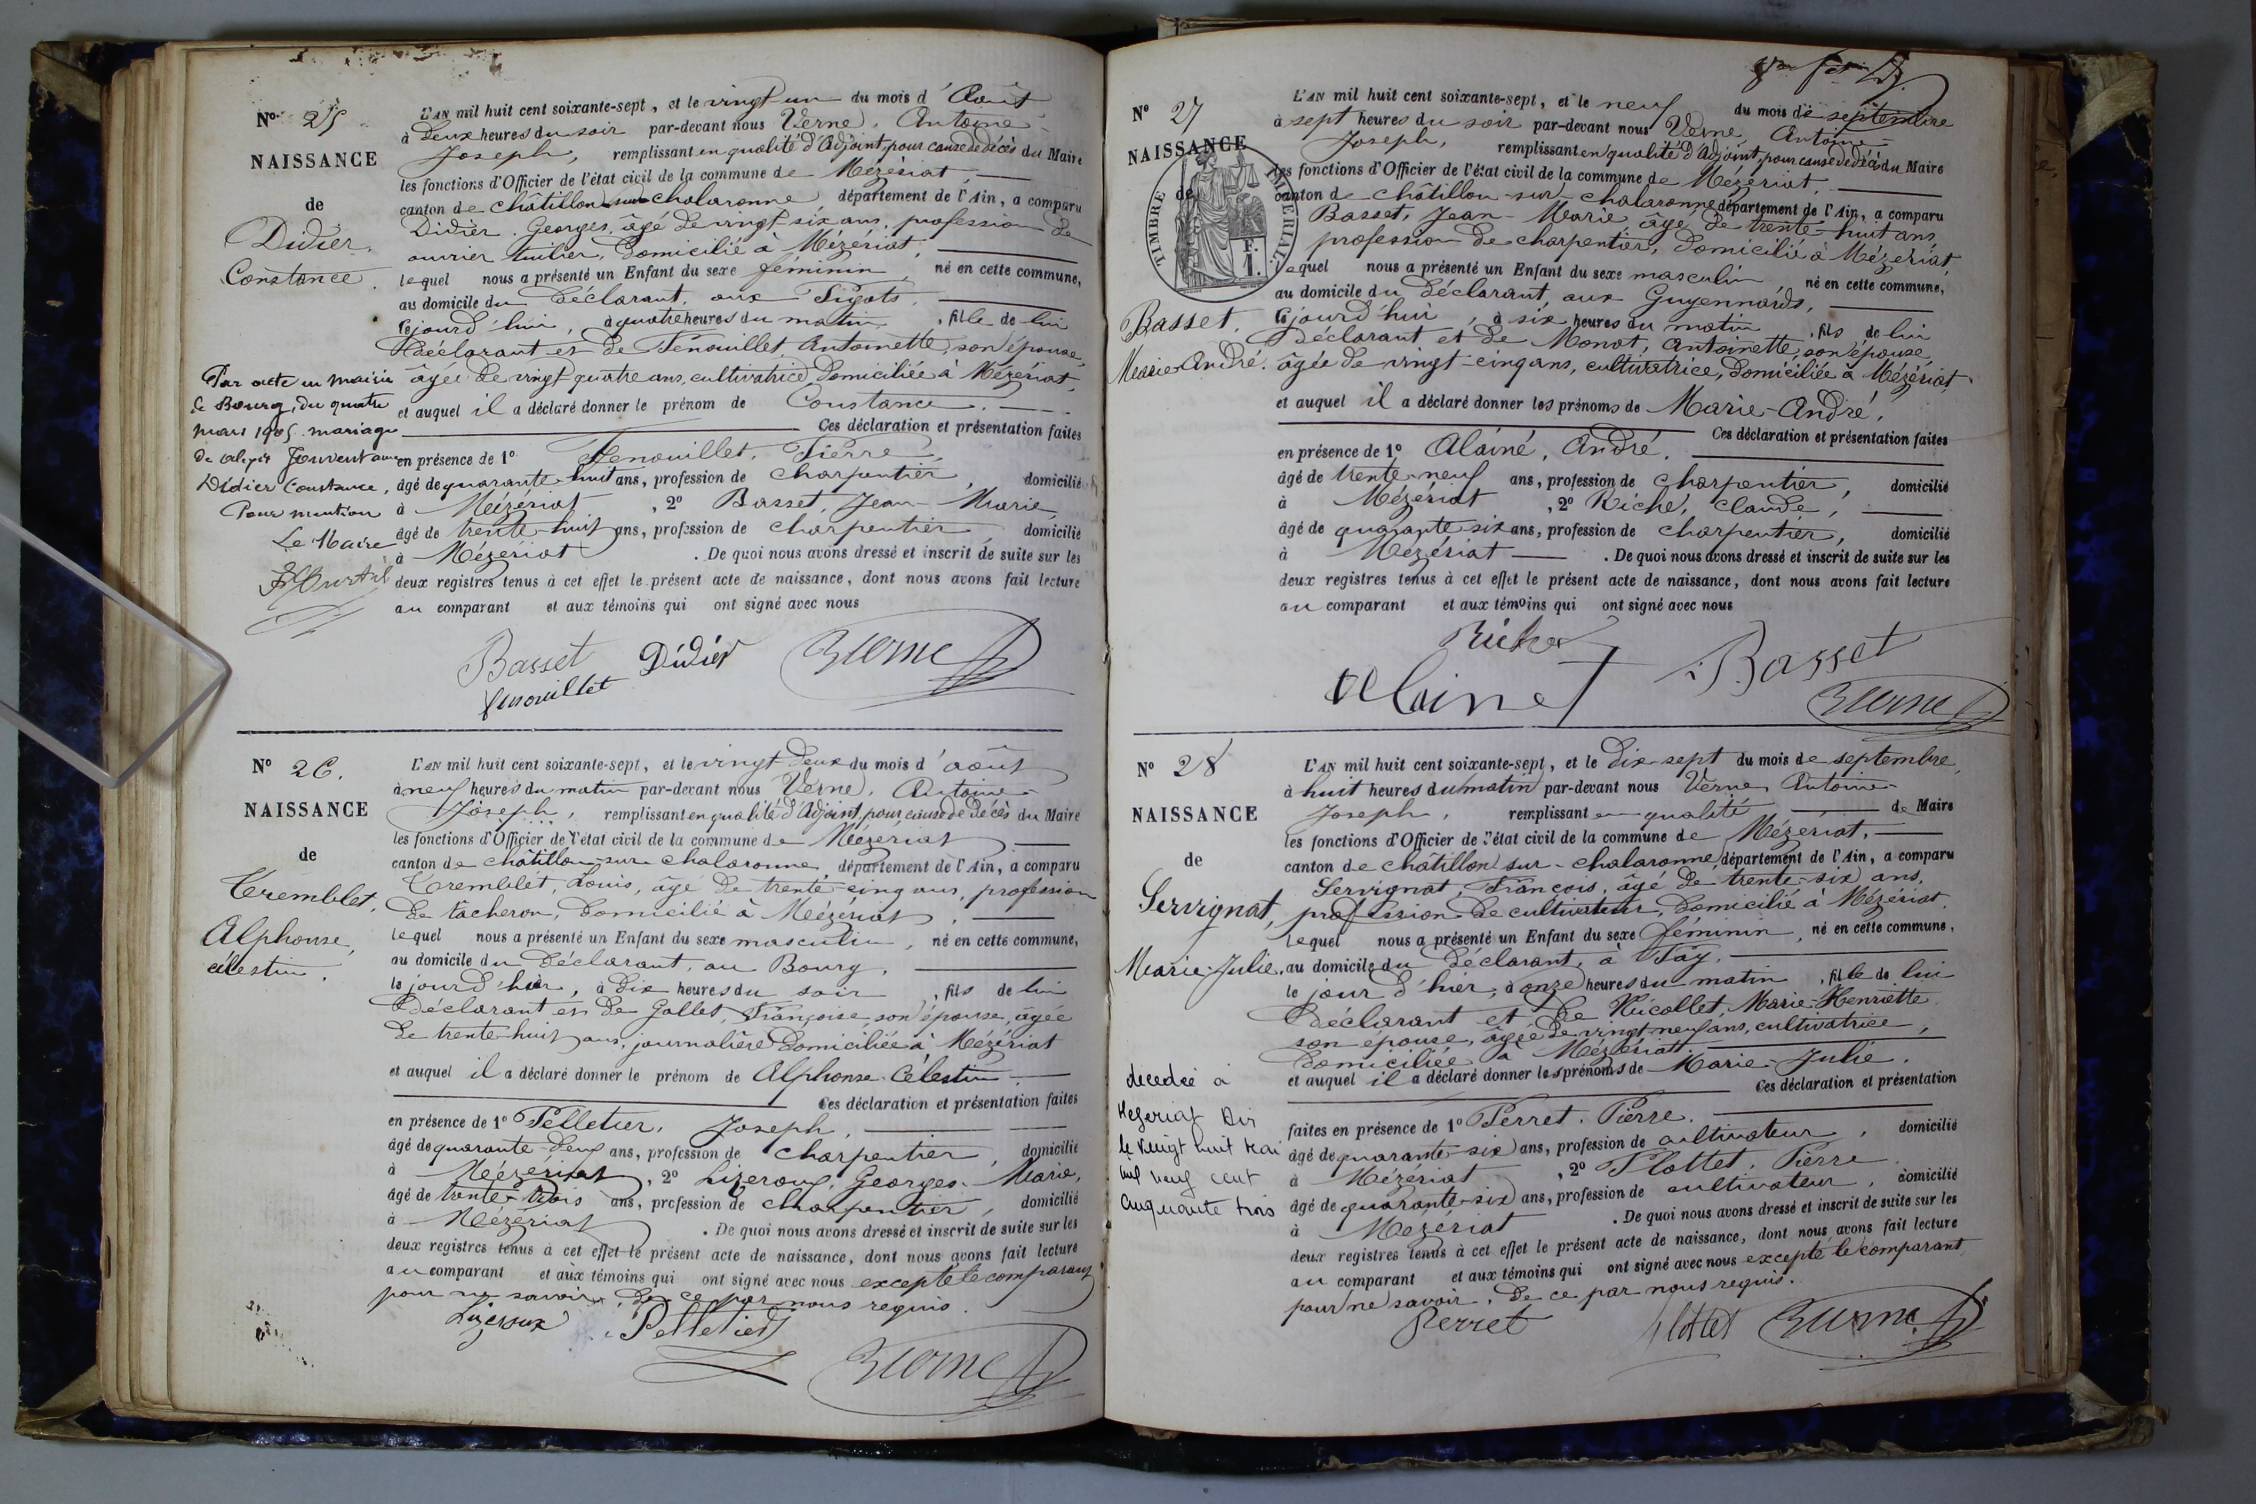 N° 25
NAISSANCE
de
Didier,
Constance.
Par acte en mairie
de Bourg, du quatre
mars 1905 mariage
de Jouvent avec
Didier Constance,
Pour mention
Le Maire
L'AN mil huit cent soixante-sept, et le vingt un du mois d'Août
à deux heures du soir par-devant nous Verne, Antoine
Joseph, remplissant en qualité d'Adjoint, pour cause de décès du Maire
les fonctions d'Officier de l'état civil de la commune de Mézériat,
canton de châtillon sur chalaronne, département de l'Ain, a comparu
Didier, Georges, âgé de vingt six ans, profession de
ouvrier tuilier, domicilié à Mézériat,
lequel nous a présenté un Enfant du sexe féminin, né en cette commune,
au domicile du déclarant, aux Sigots,
cejourd'hui, à quatre heures du matin, fille de lui
Déclarant et de Fenouillet, Antoinette, son épouse,
âgée de vingt quatre ans, cultivatrice, domiciliée à Mézériat,
et auquel il a déclaré donner le prénom de Constance.
Ces déclaration et présentation faites
en présence de 1° Fenouillet, Pierre,
âgé de quarante huit ans, profession de charpentier, domicilié
à Mézériat, 2° Basset, Jean-Marie,
âgé de trente-huit ans, profession de charpentier, domicilié
à Mézériat. De quoi nous avons dressé et inscrit de suite sur les
deux registres tenus à cet effet le présent acte de naissance, dont nous avons fait lecture
au comparant et aux témoins qui ont signé avec nous
Basset Didier Verne
fenouillet
N° 26.
NAISSANCE
de
Tremblet,
Alphonse,
célestin.
L'AN mil huit cent soixante-sept, et le vingt deux du mois d'août
à neuf heures du matin par-devant nous Verne, Antoine
Joseph, remplissant en qualité d'Adjoint, pour cause de décès du Maire
les fonctions d'Officier de l'état civil de la commune de Mézériat
canton de châtillon-sur-chalaronne, département de l'Ain, a comparu
Tremblet, Louis, âgé de trente-cinq ans, profession
de vacheron, domicilié à Mézériat,
lequel nous a présenté un Enfant du sexe masculin, né en cette commune,
au domicile du Déclarant, au Bourg,
le jour d'hier, à dix heures du soir, fils de lui
Déclarant et de Gallet, Françoise son épouse, âgée
de trente-huit ans, journalière domiciliée à Mézériat
et auquel il a déclaré donner le prénom de Alphonse Célestin.
Ces déclaration et présentation faites
en présence de 1° Pelletier, Joseph,
âgé de quarante-deux ans, profession de charpentier, domicilié
à Mézériat, 2° Lizeroux, Georges-Marie,
âgé de trente-trois ans, profession de charpentier, domicilié
à Mézériat. De quoi nous avons dressé et inscrit de suite sur les
deux registres tenus à cet effet le présent acte de naissance, dont nous avons fait lecture
au comparant et aux témoins qui ont signé avec nous excepté le comparant
pour ne savoir, de ce par nous requis.
Lizeroux Pelletier
Verne
N° 27
NAISSANCE
de
TIMBRE IMPERIAL
Basset,
Marie-André.
L'AN mil huit cent soixante-sept, et le neuf du mois de septembre
à sept heures du soir par-devant nous Verne, Antoine
Joseph, remplissant en qualité d'Adjoint, pour cause de décès du Maire
les fonctions d'Officier de l'état civil de la commune de Mézériat,
canton de châtillon-sur-chalaronne, département de l'Ain, a comparu
Basset, Jean-Marie, âgé de trente-huit ans,
profession de charpentier, domicilié à Mézériat,
lequel nous a présenté un Enfant du sexe masculin, né en cette commune,
au domicile du déclarant, aux Guyennards,
cejourd'hui, à six heures du matin, fils de lui
Déclarant et de Monat, Antoinette, son épouse,
âgée de vingt-cinq ans, cultivatrice, domiciliée à Mézériat,
et auquel il a déclaré donner les prénoms de Marie-André.
Ces déclaration et présentation faites
en présence de 1° Alainé, André,
âgé de trente-neuf ans, profession de charpentier, domicilié
à Mézériat, 2° Riché, Claude,
âgé de quarante-six ans, profession de charpentier, domicilié
à Mézériat. De quoi nous avons dressé et inscrit de suite sur les
deux registres tenus à cet effet le présent acte de naissance, dont nous avons fait lecture
au comparant et aux témoins qui ont signé avec nous
Basset
Verne
N° 28
NAISSANCE
de
Servignat,
Marie-Julie.
décédée à
Mézériat Ain
le vingt huit mai
mil neuf cent
cinquante trois
L'AN mil huit cent soixante-sept, et le dix-sept du mois de septembre,
à huit heures du matin par-devant nous Verne, Antoine-
Joseph, remplissant en qualité de Maire
les fonctions d'Officier de l'état civil de la commune de Mézériat,
canton de châtillon-sur-chalaronne département de l'Ain, a comparu
Servignat, François, âgé de trente-six ans,
profession de cultivateur, domicilié à Mézériat,
lequel nous a présenté un Enfant du sexe féminin, né en cette commune,
au domicile du déclarant, à Fay,
le jour d'hier, à onze heures du matin, fille de lui
Déclarant et de Nicollet, Marie-Henriette
son épouse, âgée de vingt-neuf ans, cultivatrice,
domiciliée à Mézériat,
et auquel il a déclaré donner les prénoms de Marie-Julie.
Ces déclaration et présentation
faites en présence de 1° Perret, Pierre,
âgé de quarante-six ans, profession de cultivateur, domicilié
à Mézériat, 2° Plottet, Pierre
âgé de quarante-six ans, profession de cultivateur, domicilié
à Mézériat. De quoi nous avons dressé et inscrit de suite sur les
deux registres tenus à cet effet le présent acte de naissance, dont nous avons fait lecture
au comparant et aux témoins qui ont signé avec nous excepté le comparant
pour ne savoir, de ce par nous requis.
Perret Plottet Verne